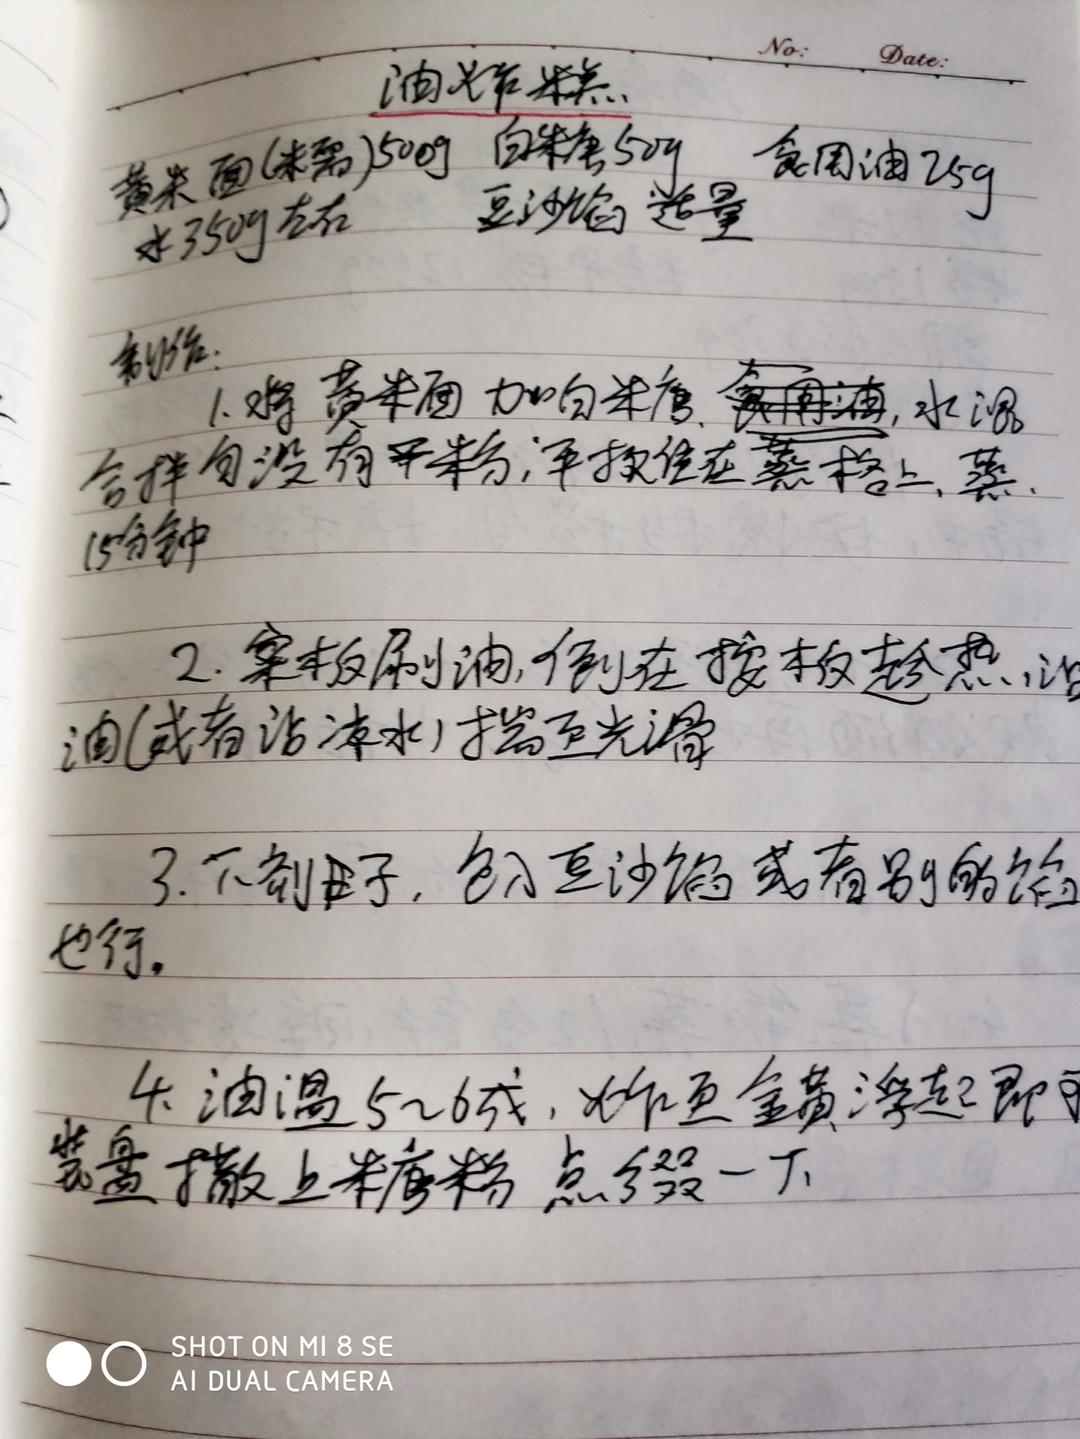 No: Date:
油炸糕
黄米面(糯)500g 白糖50g 食用油25g
水350g左右 豆沙馅 适量
制作:
1.将黄米面加白糖、食用油,水混
合拌匀没有干粉,平披住在蒸格上、蒸
15分钟
2.案板刷油,倒在按板趁热,沾
油(或者沾凉水)揣至光滑
3.下剂子,包入豆沙馅或者别的馅
也行。
4.油温5~6成,炸至金黄浮起即可
装盘撒上糖粉点缀一下
SHOT ON MI 8 SE
AI DUAL CAMERA